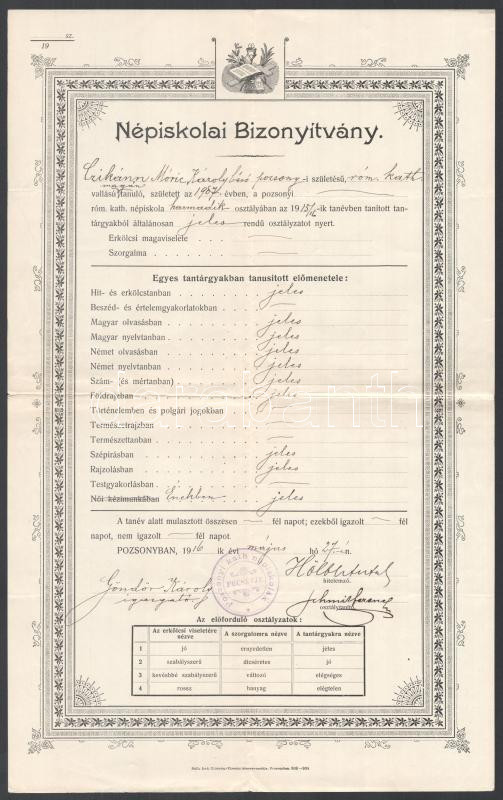 sz.
19
Népiskolai Bizonyítvány.
Czihánn Móric Károly pozsony-i születésű, róm. kath.
magán
vallású tanuló, született az 1907 évben, a pozsonyi
róm. kath. népiskola harmadik osztályában az 1915/16-ik tanévben tanított tan-
tárgyakból általánosan jeles rendű osztályzatot nyert.
Erkölcsi magaviselete
Szorgalma
Egyes tantárgyakban tanusított előmenetele:
Hit- és erkölcstanban jeles
Beszéd- és értelemgyakorlatokban
Magyar olvasásban jeles
Magyar nyelvtanban jeles
Német olvasásban jeles
Német nyelvtanban jeles
Szám- (és mértanban) jeles
Földrajzban jeles
Történelemben és polgári jogokban
Természetrajzban
Természettanban
Szépírásban jeles
Rajzolásban jeles
Testgyakorlásban
Női kézimunkában Énekben jeles
A tanév alatt mulasztott összesen fél napot; ezekből igazolt fél
napot, nem igazolt fél napot.
POZSONYBAN, 1916 ik évi május hó 27-én.
Göndör Károly
igazgató
hitelemző.
osztálytanító.
Az előforduló osztályzatok:
Az erkölcsi viseletére nézve A szorgalomra nézve A tantárgyakra nézve
1 jó ernyedetlen jeles
2 szabályszerű dicséretes jó
3 kevésbbé szabályszerű változó elégséges
4 rossz hanyag elégtelen